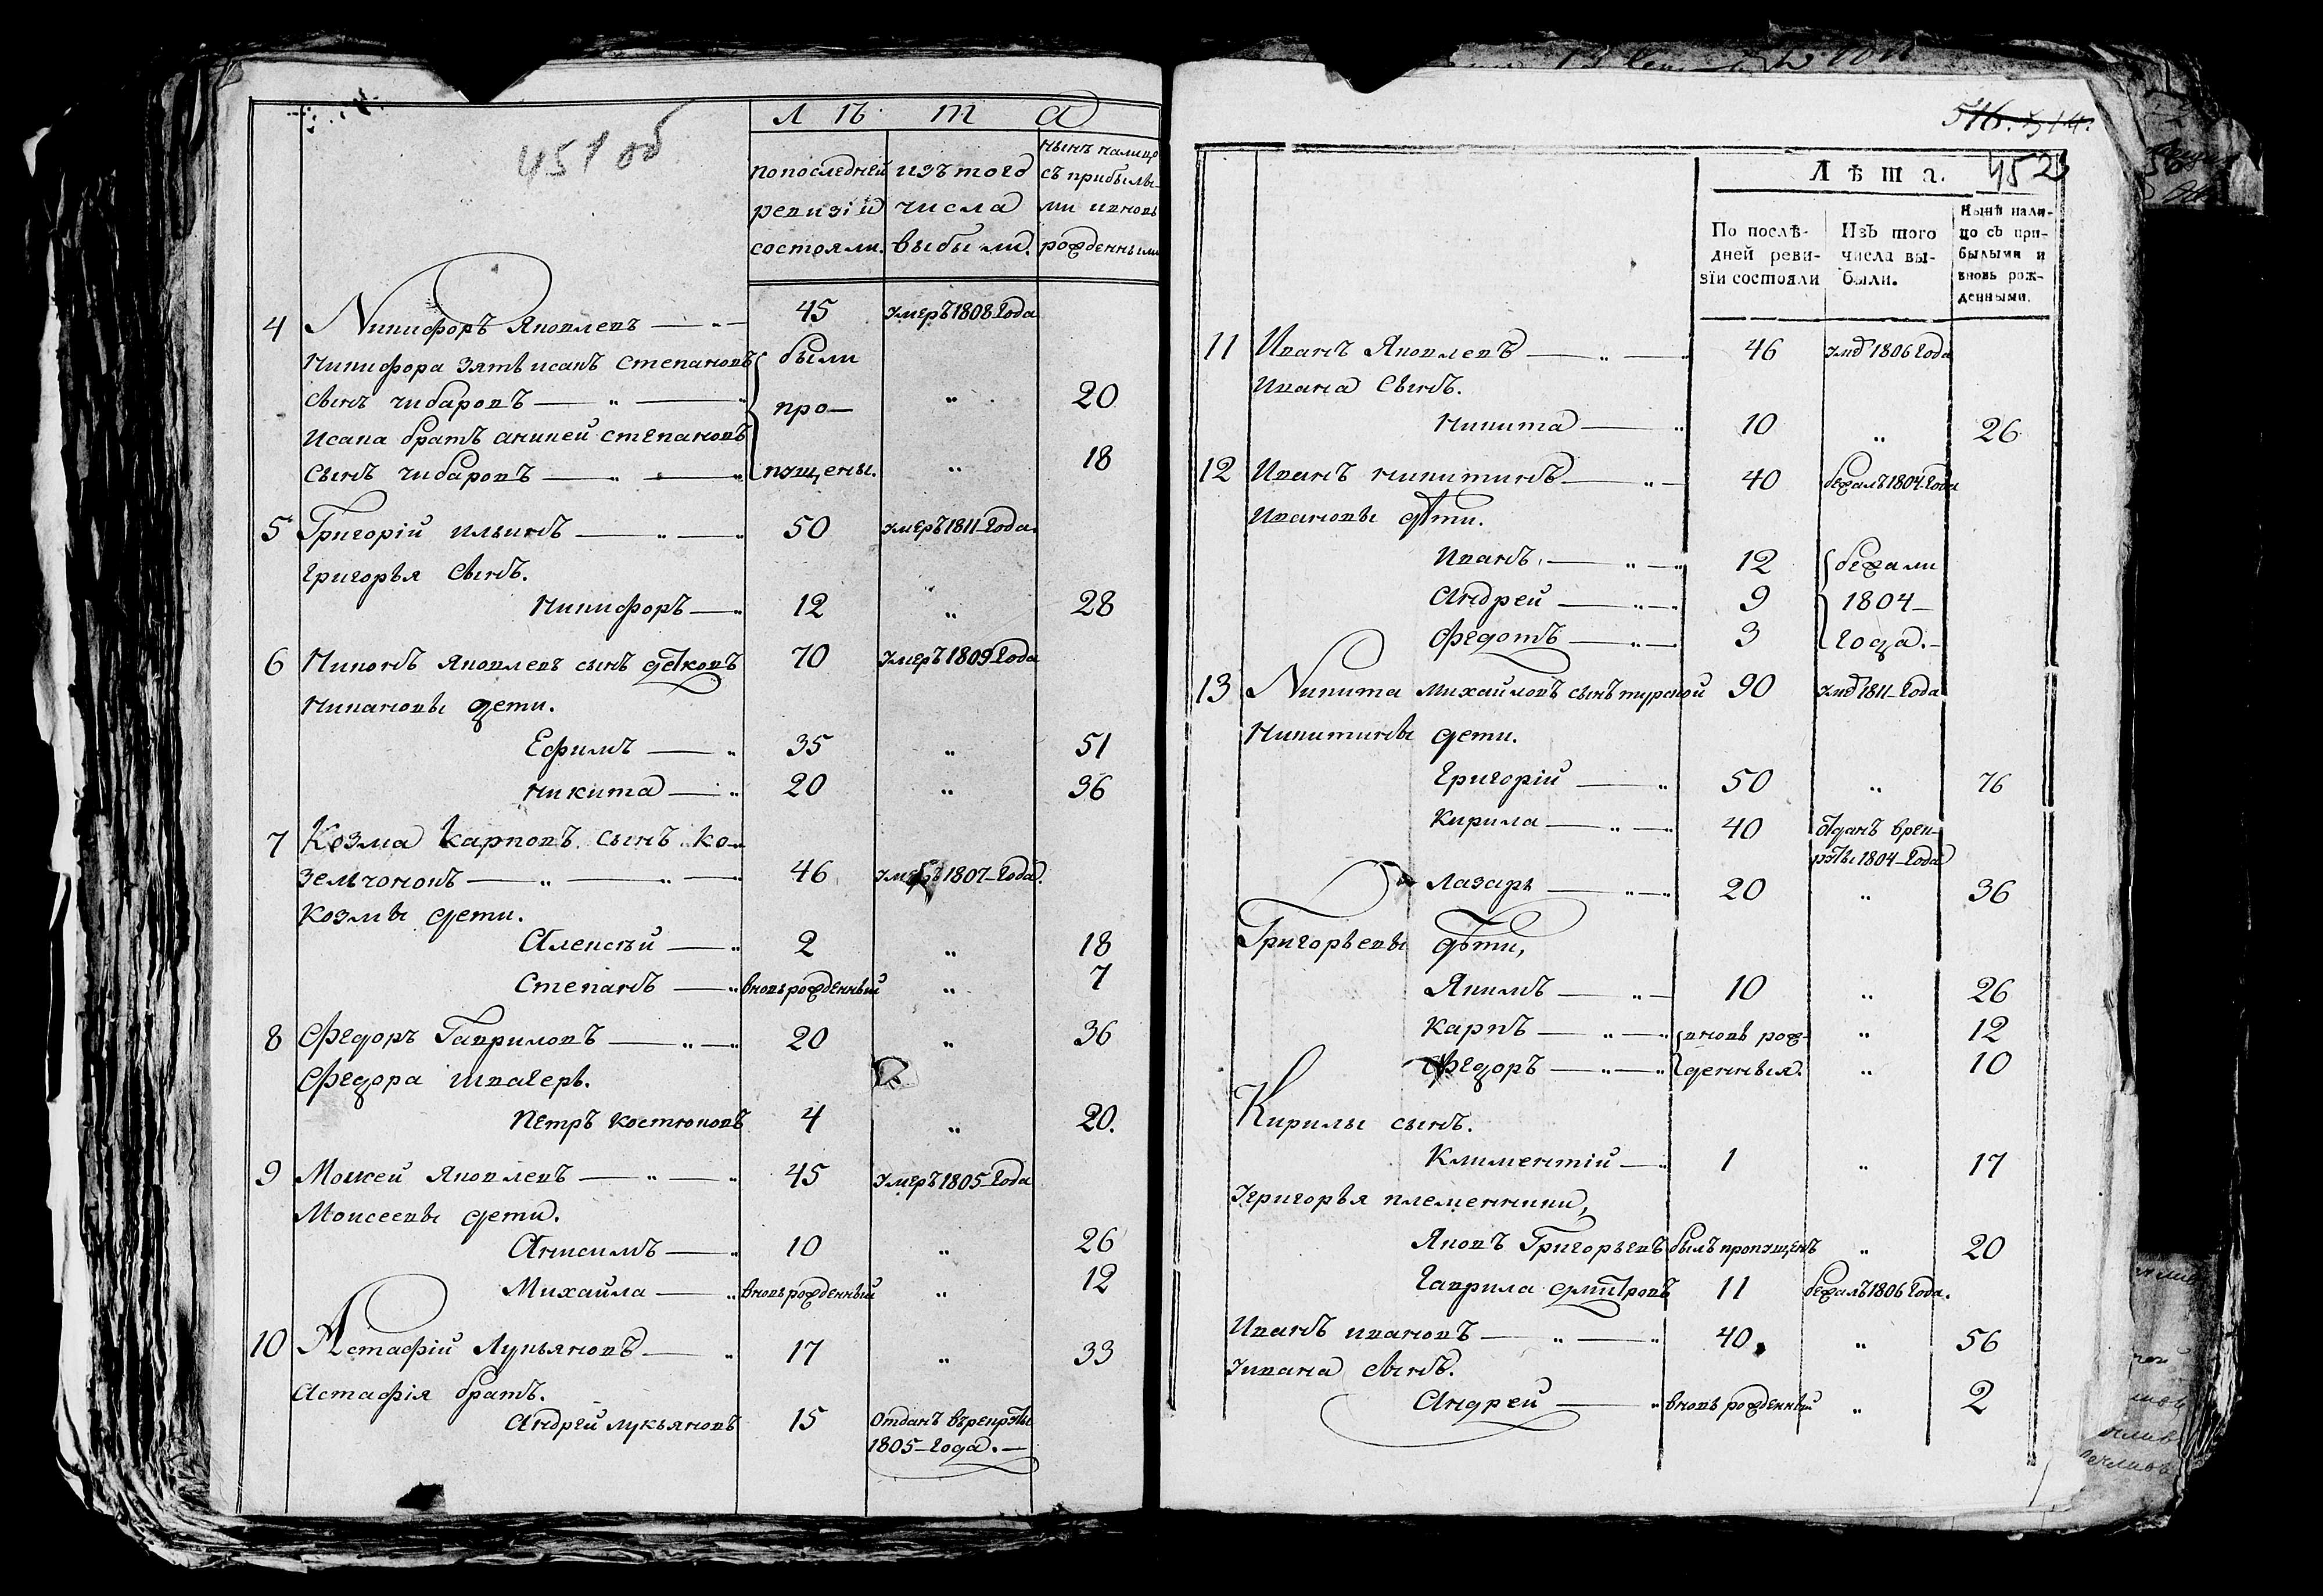 451 об
Лѣта
по последней из того нынѣ налицо
ревизіи числа съ прибылы-
состояли. выбыли. ми и вновь
рожденными
4 Никифоръ Яковлевъ 45 умеръ 1808 года
Никифора зять исакъ степановъ были
сынъ чибаровъ про- „ 20
Исака братъ аникей степановъ
сынъ чибаровъ пущены. „ 18
5 Григорій ильинъ 50 умеръ 1811 года.
григорья сынъ.
никифоръ 12 „ 28
6 Никонъ яковлевъ сынъ дѣтковъ 70 умеръ 1809 года
никановы дети.
Ефимъ 35 „ 51
никита 20 „ 36
7 Козма карповъ сынъ ко-
зелчоновъ 46 умеръ 1807 года.
козмы дети.
Алексѣй 2 „ 18
Степанъ вновьрожденный „ 7
8 Федоръ Гавриловъ 20 „ 36
Федора швагеръ.
петръ костюковъ 4 „ 20.
9 Моисей Яковлевъ 45 умеръ 1805 года
Моисеевы дети.
Анисимъ 10 „ 26
Михайла вновьрожденный „ 12
10 Астафій Лукьяновъ 17 „ 33
Астафія братъ.
Андрей лукьяновъ 15 отданъ въ рекруты
1805 года.
516. 514.
452
Лѣта.
По послѣ- Изъ того Нынѣ нали-
дней реви- числа вы- цо съ при-
зіи состояли были. былыми и
вновь рож-
денными.
11 Иванъ Яковлевъ 46 умеръ 1806 года
Ивана сынъ.
никита 10 „ 26
12 Иванъ никитинъ 40 бежалъ 1804 года
Ивановы дѣти.
Иванъ 12 бежали
Андрей 9 1804
федотъ 3 года.
13 Никита михайловъ сынъ турской 90 умеръ 1811 года
Никитины дети.
григорій 50 „ 76
Кирила 40 отданъ в рек-
руты 1804 года
Лазарь 20 „ 36
Григорьевы дѣти,
Якимъ 10 „ 26
карпъ вновь рож- „ 12
федоръ денныя. „ 10
Кирилы сынъ.
Климентій 1 „ 17
Угригорья племенники,
Яковъ Григорьевъ былъ пропущенъ „ 20
гаврила дмитровъ 11 бежалъ 1806 года.
Иванъ ивановъ 40 „ 56
Уивана сынъ.
Андрей вновь рожденный „ 2